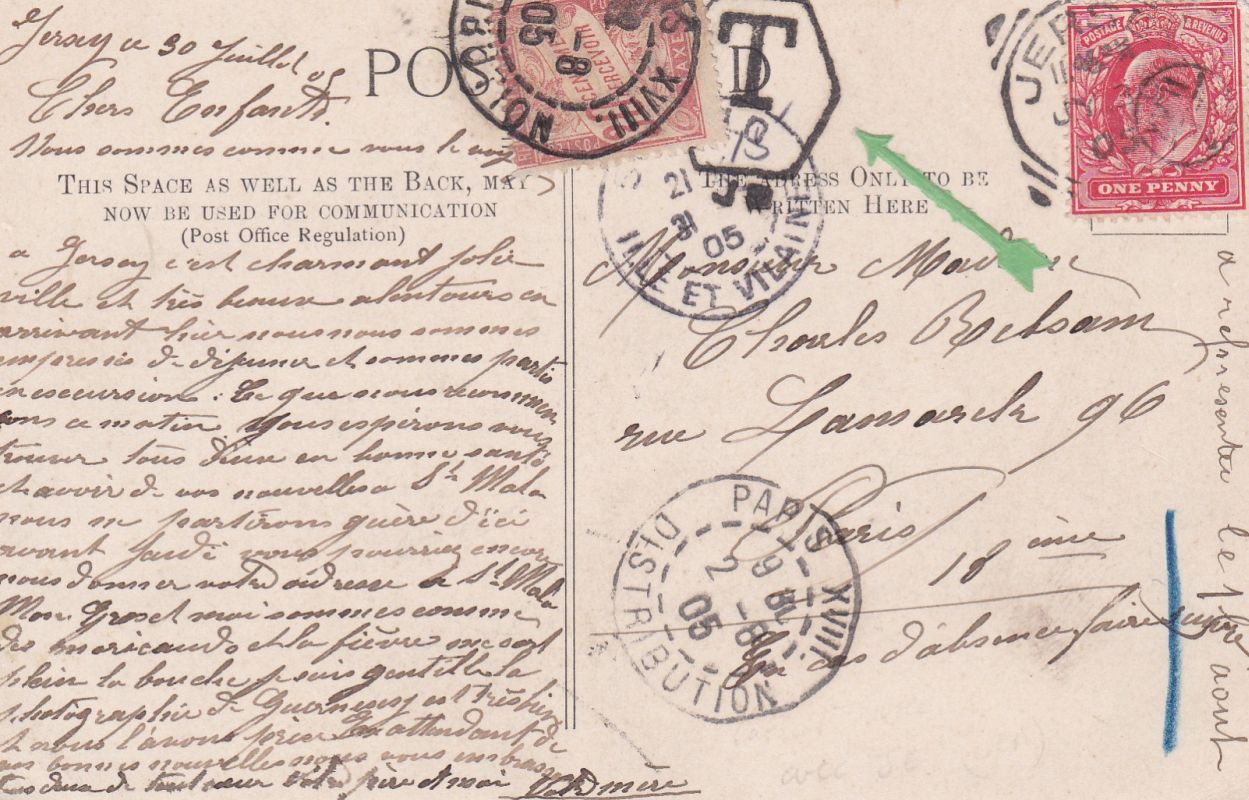 Jersey ce 30 Juillet 05
Chers Enfants
Nous sommes comme vous le
THIS SPACE AS WELL AS THE BACK, MAY
NOW BE USED FOR COMMUNICATION
(Post Office Regulation)
a Jersey c'est charmant jolie
ville et très beaux alentours en
arrivant hier nous nous sommes
empressés de déjeuner et sommes partis
en escursion. Ce que nous recommen
çons ce matin Nous espirons vous
trouver tous deux en bonne santé
et avoir de vos nouvelles a St Malo
nous ne partirons guère d'ici
avant Jeudi vous pourriez encore
nous donner votre adresse a St Malo
Mon Gros et moi sommes comme
des moricauds et la fièvre me sort
plein la bouche
photographie de Guernesey est très
et nous l'avons En attendant de
vos bonnes nouvelles nous vous embrassons
tous deux de tout cœur votre père et moi Votre mère
PO D
XVIII.
05
-8
CENTIMES
PERCEVOIR
T
21
31
05
ILLE ET VILAINE
THE ADRESS ONLY TO BE
WRITTEN HERE
JERSEY
POSTAGE & REVENUE
ONE PENNY
Monsieur
Charles Rebsam
rue Lamarck 96
Paris
18 ième
En cas d'absence faire suivre
PARIS XVIII.
DISTRIBUTION
2
-8
05
a representer le août